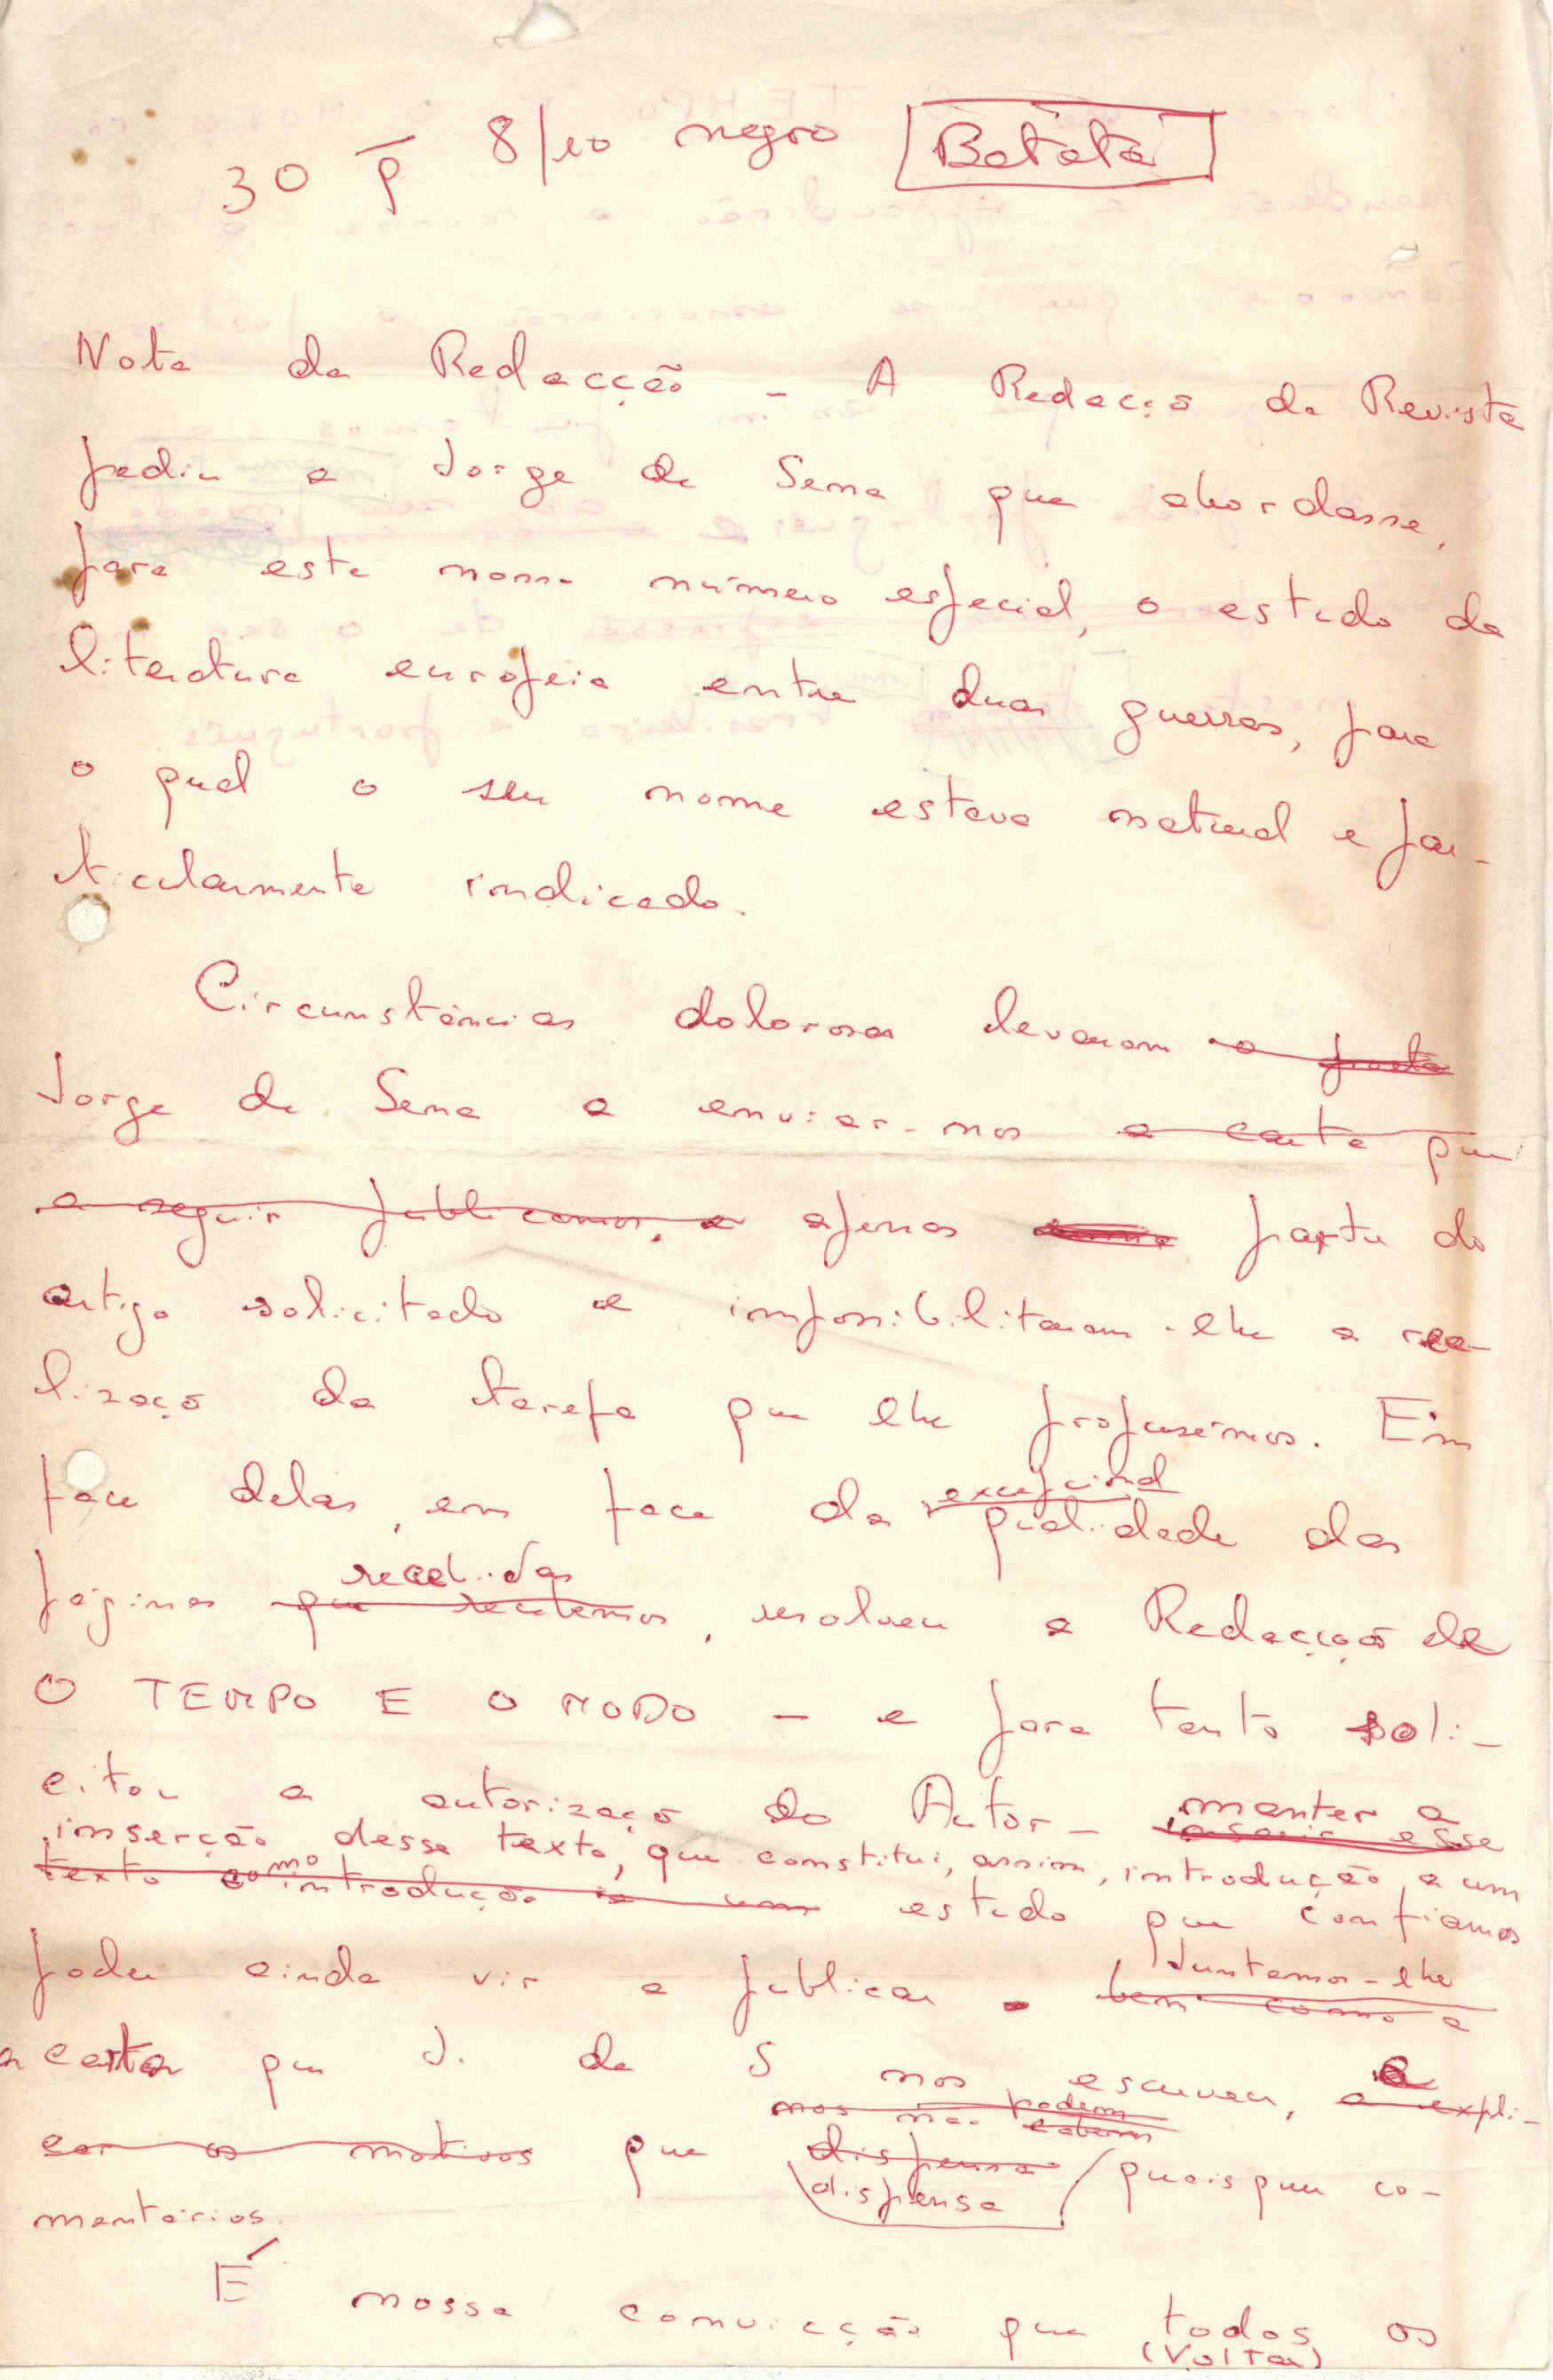 30 p 8/10 negro Batata
Nota da Redacção - A Redacção da Revista
pediu a Jorge de Sena que abordasse,
para este nosso número especial, o estudo da
literatura europeia entre duas guerras, para
o qual o seu nome estava natural e par-
ticularmente indicado.
Circunstâncias dolorosas levaram o
Jorge de Sena a enviar-nos a carta que
a seguir publicamos, e apenas parte do
artigo solicitado e impossibilitaram-lhe a rea-
lização da tarefa que lhe propusémos. Em
excepcional
face delas, em face da qualidade das
recebidas
páginas que recebemos, resolveu a Redacção de
O TEMPO E O MODO - e para tanto soli-
citou a autorização do Autor - manter a
inserir esse
inserção desse texto, que constitui, assim, introdução a um
texto como introdução a um estudo que confiamos
Juntamos-lhe
poder ainda vir a publicar. bem como a
a carta que J. de S nos escreveu, e a expli-
mas não podem cabem
car os motivos que dispensa quaisquer co-
dispensa
mentários.
É nossa convicção que todos os
(Voltar)